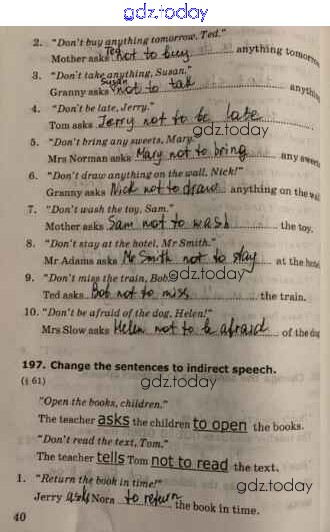 gdz.today
2. "Don't buy anything tomorrow, Ted."
Mother asks Ted not to buy anything tomorrow
3. "Don't take anything, Susan."
Granny asks Susan not to tak anything
4. "Don't be late, Jerry."
Tom asks Jerry not to be late
gdz.today
5. "Don't bring any sweets, Mary."
Mrs Norman asks Mary not to bring any sweets
6. "Don't draw anything on the wall, Nick!"
Granny asks Nick not to draw anything on the wall
7. "Don't wash the toy, Sam."
Mother asks Sam not to wash the toy.
8. "Don't stay at the hotel, Mr Smith."
Mr Adams asks Mr Smith not to stay at the hotel
9. "Don't miss the train, Bob.
gdz.today
Ted asks Bob not to miss the train.
10. "Don't be afraid of the dog, Helen!"
Mrs Slow asks Helen not to be afraid of the dog
197. Change the sentences to indirect speech.
(§ 61)
gdz.today
"Open the books, children."
The teacher asks the children to open the books.
"Don't read the text, Tom."
The teacher tells Tom not to read the text.
1. "Return the book in time!"
gdz.today
Jerry asks Nora to return the book in time.
40